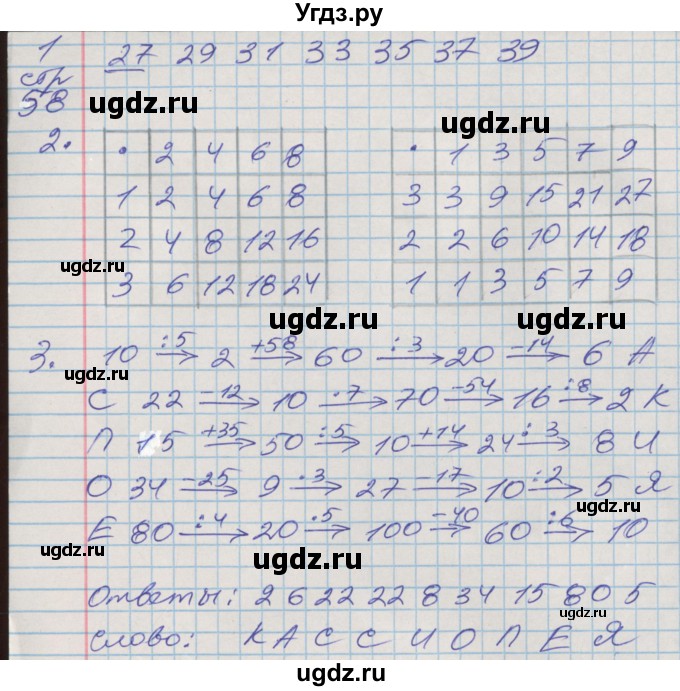 Угдз.ру
1 27 29 31 33 35 37 39
стр
58 ugdz.ru ugdz.ru
2. · 2 4 6 8 · 1 3 5 7 9
1 2 4 6 8 3 3 9 15 21 27
2 4 8 12 16 2 2 6 10 14 18
ugdz.ru ugdz.ru
3 6 12 18 24 1 1 3 5 7 9
ugdz.ru ugdz.ru
3. 10 :5→ 2 +58→ 60 :3→ 20 -14→ 6 А
ugdz.ru
С 22 -12→ 10 ·7→ 70 -54→ 16 :8→ 2 К
ugdz.ru ugdz.ru
П 15 +35→ 50 :5→ 10 +14→ 24 :3→ 8 И
О 34 -25→ 9 ·3→ 27 -17→ 10 :2→ 5 Я
ugdz.ru
Е 80 :4→ 20 ·5→ 100 -40→ 60 :6→ 10
ugdz.ru ugdz.ru
Ответы: 2 6 22 22 8 34 15 80 5
ugdz.ru
слово: К А С С И О П Е Я
ugdz.ru